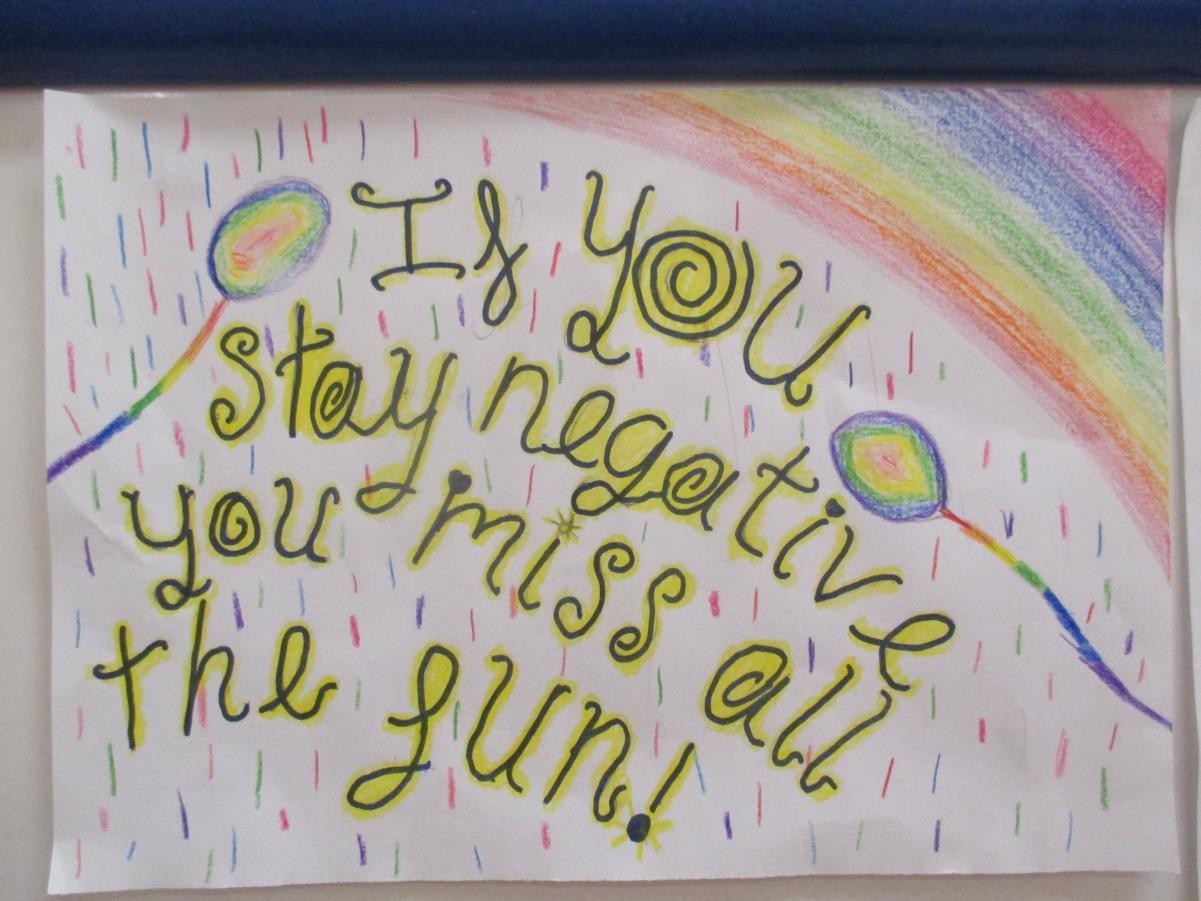 If you
stay negative
you miss all
the fun!